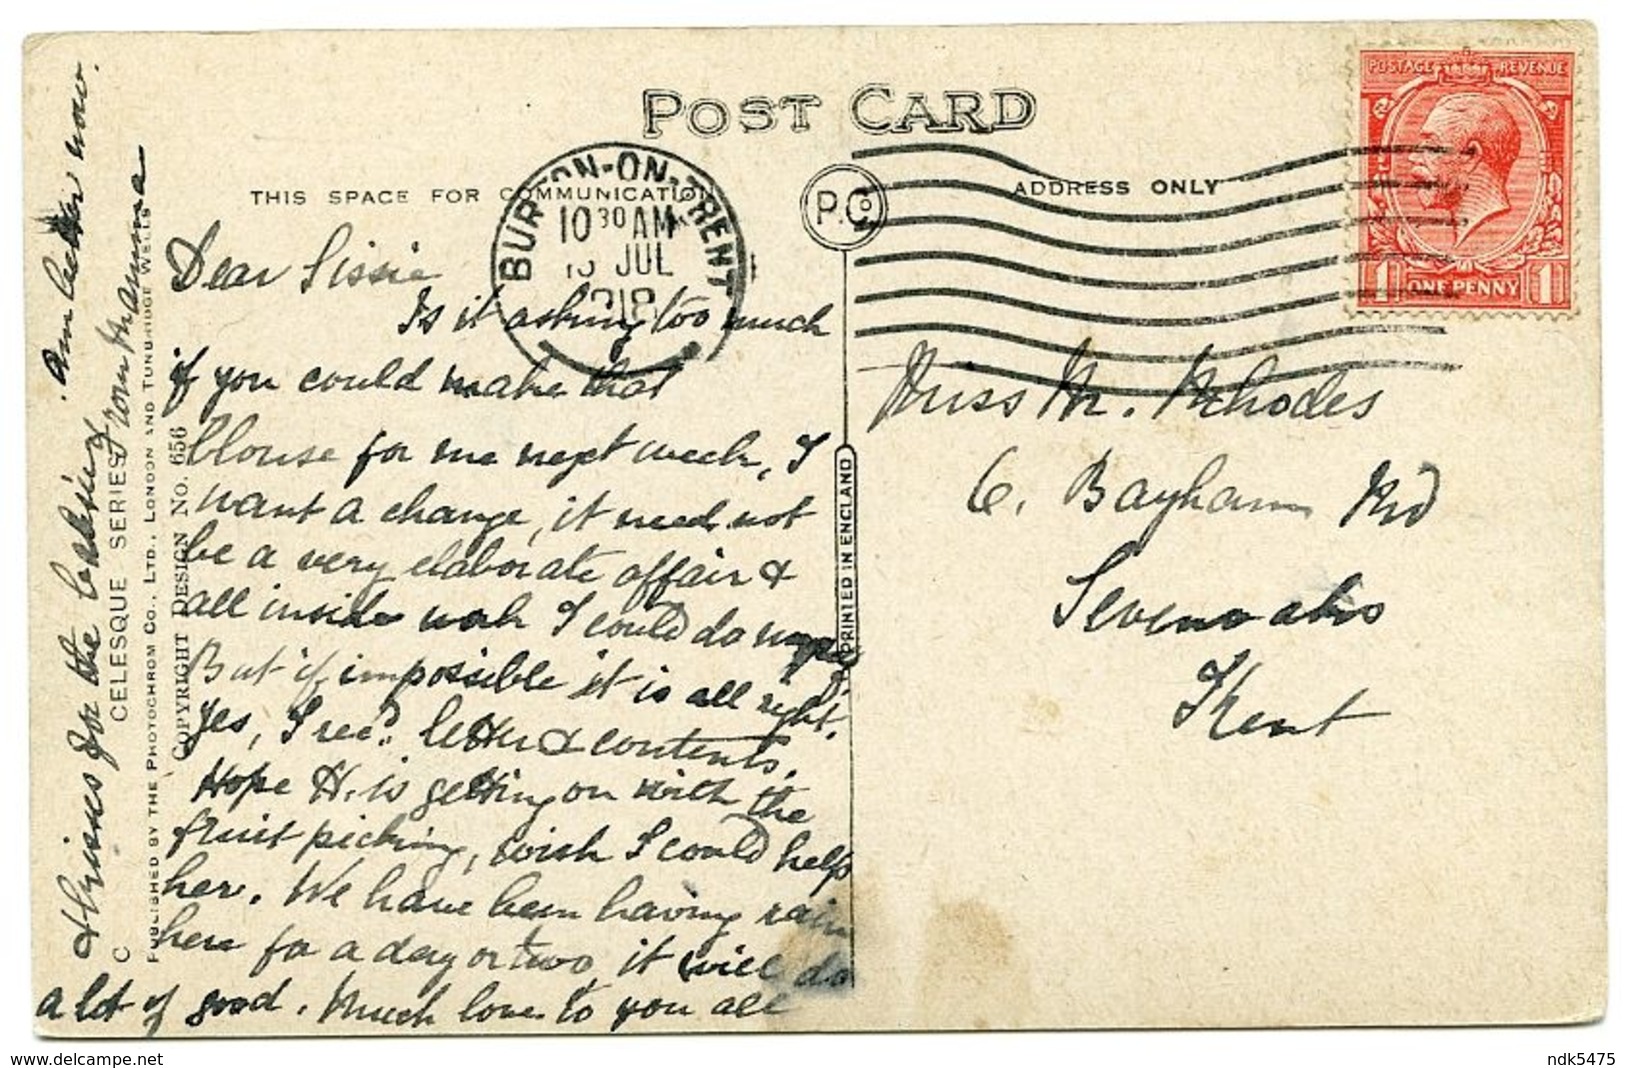 POST CARD
THIS SPACE FOR COMMUNICATION
ADDRESS ONLY
P. Co
BURTON-ON-TRENT
10 30 AM
JUL
1918
POSTAGE REVENUE
1 ONE PENNY 1
Dear Sissie
Is it asking too much
if you could make that
blouse for me next week, I
want a change, it need not
be a very elaborate affair &
all inside work I could do myself
But if impossible it is all right.
Yes, I recd. letter & contents.
Hope H. is getting on with the
fruit picking, wish I could help
her. We have been having rain
here for a day or two, it will do
a lot of good. Much love to you all
& kisses for the baby
from Mamma
am better now.
Miss M. Rhodes
6. Bayham Rd
Sevenoaks
Kent
PRINTED IN ENGLAND
C CELESQUE SERIES
PUBLISHED BY THE PHOTOCHROM CO., LTD., LONDON AND TUNBRIDGE WELLS
COPYRIGHT DESIGN NO. 656
www.delcampe.net
ndk5475